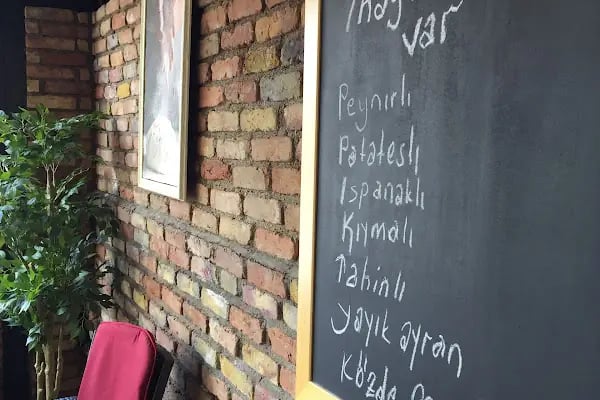 var
Peynirli
Patatesli
Ispanaklı
Kıymalı
Tahinli
yayık ayran
Közde